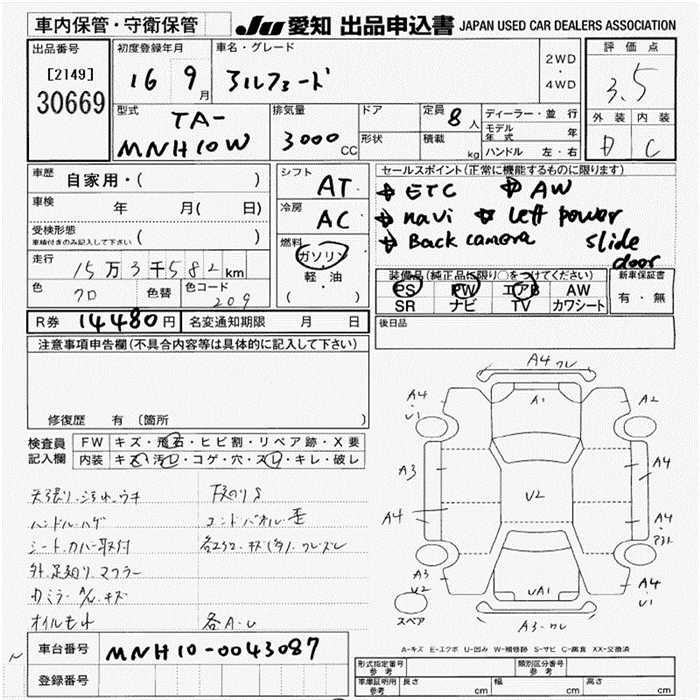 車内保管・守衛保管
JU 愛知 出品申込書 JAPAN USED CAR DEALERS ASSOCIATION
出品番号
[2149]
30669
初度登録年月
16 9月
車名・グレード
アルファード
2WD
・
4WD
評価点
3.5
外装 内装
D C
型式
TA-
MNH10W
排気量
3000 CC
ドア
形状
定員 8人
積載 kg
ディーラー・並行
モデル年式 年
ハンドル 左・右
車歴 自家用・( )
車検 年 月( 日)
受検形態
車検付きのみ記入して下さい ( )
走行 15万3千582km
色 クロ 色替 色コード 209
シフト AT
冷房 AC
燃料
ガソリン
軽・油
( )
セールスポイント(正常に機能するものに限ります)
ETC AW
navi Left power
Back camera slide
door
装備品(純正品に限り○をつけてください)
PS PW エアB AW
SR ナビ TV カワシート
新車保証書
有・無
R券 14480円 名変通知期限 月 日
後日品
注意事項申告欄(不具合内容等は具体的に記入して下さい)
修復歴 有 〔箇所 〕
検査員
記入欄
FW キズ・飛石・ヒビ割・リペア跡・X要
内装 キズ・汚レ・コゲ・穴・スレ・キレ・破レ
天張り.よごれ.ウキ
ハンドル.ハゲ
シート.カバー取付
外.足廻り.マフラー
カミラーA/U.キズ
オイルもれ 各A.U
A4 ワレ
A4 U1
A1
A2
A3
A4
U2
A4
A4
A3
U2
UA1
A4
U1
スペア
A3-ワレ
A-キズ E-エクボ U-凹み W-補修跡 S-サビ C-腐食 XX-交換済
車台番号 MNH10-0043087
登録番号
形式指定番号
参考
類別区分番号
参考
車庫証明用
参考
長さ cm 幅 cm 高さ cm